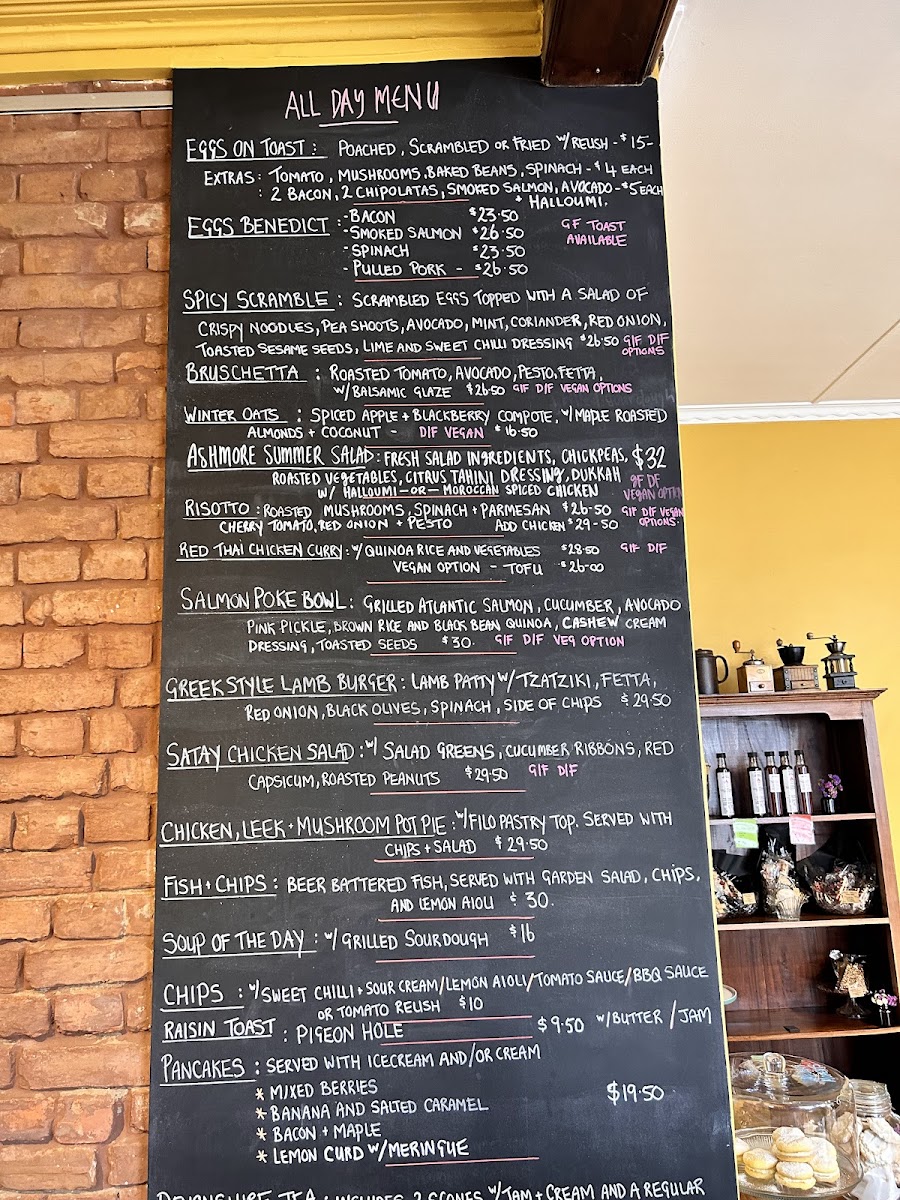 ALL DAY MENU
EGGS ON TOAST : POACHED, SCRAMBLED OR FRIED W/ RELISH - $15-
EXTRAS : TOMATO, MUSHROOMS, BAKED BEANS, SPINACH - $4 EACH
: 2 BACON, 2 CHIPOLATAS, SMOKED SALMON, AVOCADO - $5 EACH
+ HALLOUMI.
EGGS BENEDICT : - BACON $23.50
- SMOKED SALMON $26.50 GF TOAST
- SPINACH $23.50 AVAILABLE
- PULLED PORK - $26.50
SPICY SCRAMBLE : SCRAMBLED EGGS TOPPED WITH A SALAD OF
CRISPY NOODLES, PEA SHOOTS, AVOCADO, MINT, CORIANDER, RED ONION,
TOASTED SESAME SEEDS, LIME AND SWEET CHILLI DRESSING $26.50 G/F D/F
OPTIONS
BRUSCHETTA : ROASTED TOMATO, AVOCADO, PESTO, FETTA,
W/ BALSAMIC GLAZE $26.50 G/F D/F VEGAN OPTIONS
WINTER OATS : SPICED APPLE + BLACKBERRY COMPOTE, W/ MAPLE ROASTED
ALMONDS + COCONUT - D/F VEGAN $16.50
ASHMORE SUMMER SALAD : FRESH SALAD INGREDIENTS, CHICKPEAS, $32
ROASTED VEGETABLES, CITRUS TAHINI DRESSING, DUKKAH GF DF
W/ HALLOUMI - OR - MOROCCAN SPICED CHICKEN VEGAN OPTION
RISOTTO : ROASTED MUSHROOMS, SPINACH + PARMESAN $26.50 G/F D/F VEGAN
CHERRY TOMATO, RED ONION + PESTO ADD CHICKEN $29-50 OPTIONS.
RED THAI CHICKEN CURRY : W/ QUINOA RICE AND VEGETABLES $28.50 G/F D/F
VEGAN OPTION - TOFU $26-00
SALMON POKE BOWL : GRILLED ATLANTIC SALMON, CUCUMBER, AVOCADO
PINK PICKLE, BROWN RICE AND BLACK BEAN QUINOA, CASHEW CREAM
DRESSING, TOASTED SEEDS $30. G/F D/F VEG OPTION
GREEK STYLE LAMB BURGER : LAMB PATTY W/ TZATZIKI, FETTA,
RED ONION, BLACK OLIVES, SPINACH, SIDE OF CHIPS $29.50
SATAY CHICKEN SALAD : W/ SALAD GREENS, CUCUMBER RIBBONS, RED
CAPSICUM, ROASTED PEANUTS $29.50 G/F D/F
CHICKEN, LEEK + MUSHROOM POT PIE : W/ FILO PASTRY TOP. SERVED WITH
CHIPS + SALAD $29.50
FISH + CHIPS : BEER BATTERED FISH, SERVED WITH GARDEN SALAD, CHIPS,
AND LEMON AIOLI $30.
SOUP OF THE DAY : W/ GRILLED SOURDOUGH $16
CHIPS : W/ SWEET CHILLI + SOUR CREAM/LEMON AIOLI/TOMATO SAUCE/BBQ SAUCE
OR TOMATO RELISH $10
RAISIN TOAST : PIGEON HOLE $9.50 W/BUTTER / JAM
PANCAKES : SERVED WITH ICECREAM AND/OR CREAM
* MIXED BERRIES $19.50
* BANANA AND SALTED CARAMEL
* BACON + MAPLE
* LEMON CURD W/MERINGUE
DEVONSHIRE TEA : INCLUDES 2 SCONES W/ JAM + CREAM AND A REGULAR